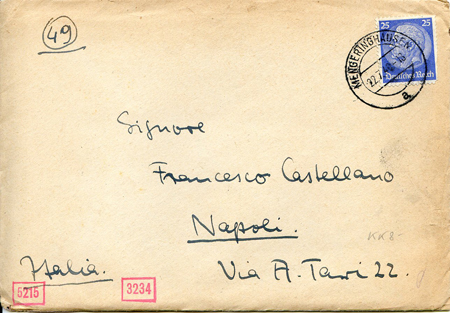 49
25 25
Deutsches Reich
MENGERINGHAUSEN
a
Signore
Francesco Castellano
Napoli.
Italia.
Via A. Tari 22.
5215
3234